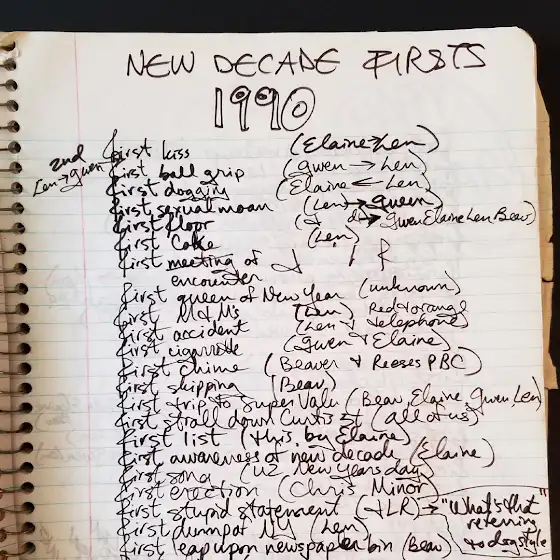 NEW DECADE FIRSTS
1990
first kiss (Elaine → Len)
2nd Len → gwen
first ball grip (gwen → Len)
first dogairy (Elaine ← Len)
first sexual moan (Len → gwen)
first floor Gwen Elaine Len Beav)
first Coke (Len)
first meeting of
encounter
first queen of New Year (unknown)
first M&M's (Len) Red & orange
first accident (Len telephone)
first cigarette (Gwen & Elaine)
first Chime (Beaver & Reeses PBC)
first skipping (Beav)
first trip to Super Valu (Beav, Elaine, Gwen, Len)
first stroll down Curtis St (all of us)
first list (this, by Elaine)
first awareness of new decade (Elaine)
first song (U2 New Years day)
first erection (Chris Minor)
first stupid statement (& LR) → "What's that
referring
to dogstyle
first dump of NY (Len)
first leap upon newspaper bin (Beav)